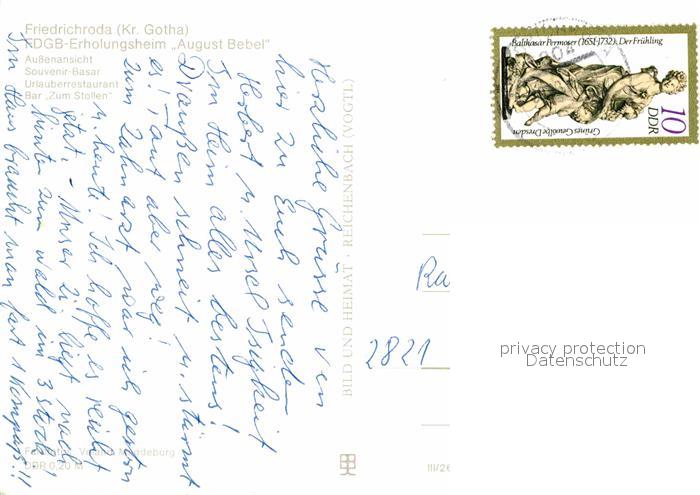 Friedrichroda (Kr. Gotha)
FDGB-Erholungsheim „August Bebel"
Außenansicht
Souvenir-Basar
Urlauberrestaurant
Bar „Zum Stollen"
Herzliche Grüsse von
hier zu Euch senden
Herbert u. Ursel
Im Heim alles bestens!
Draußen schneit u. stürmt
es! Taut aber weg!
Zum Zahnarzt war ich gestern
u. heute! Ich hoffe es reicht
jetzt. - Unser Zi. liegt nach
hinten zum Wald im 3 Stock!
Im Haus braucht man fast 1 Kompass!!
BILD UND HEIMAT · REICHENBACH (VOGTL)
Magdeburg
DDR 0,20 M
III/26
Balthasar Permoser (1651-1732), Der Frühling
10
DDR
Grünes Gewölbe Dresden
Ra
2821
privacy protection
Datenschutz